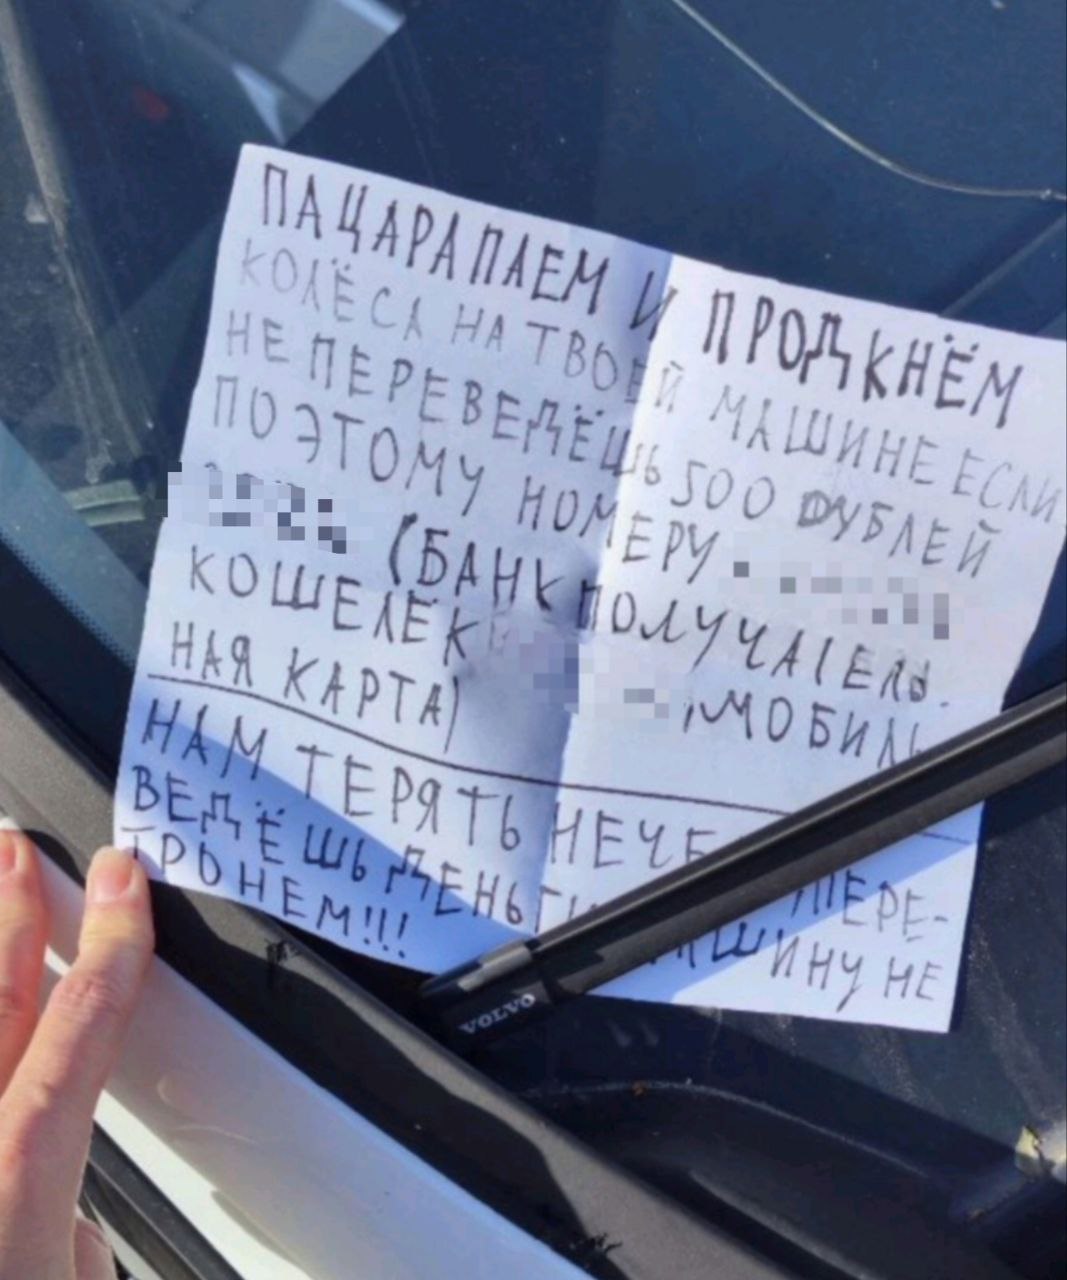 ПАЦАРАПАЕМ И ПРОДКНЁМ
КОЛЁСА НА ТВОЕЙ МАШИНЕ ЕСЛИ
НЕ ПЕРЕВЕДЁШЬ 500 РУБЛЕЙ
ПО ЭТОМУ НОМЕРУ
(БАНК ПОЛУЧАТЕЛЬ.
КОШЕЛЁК , МОБИЛЬ
НАЯ КАРТА)
НАМ ТЕРЯТЬ НЕЧЕ ПЕРЕ-
ВЕДЁШЬ ДЕНЬГИ МАШИНУ НЕ
ТРОНЕМ!!!
VOLVO